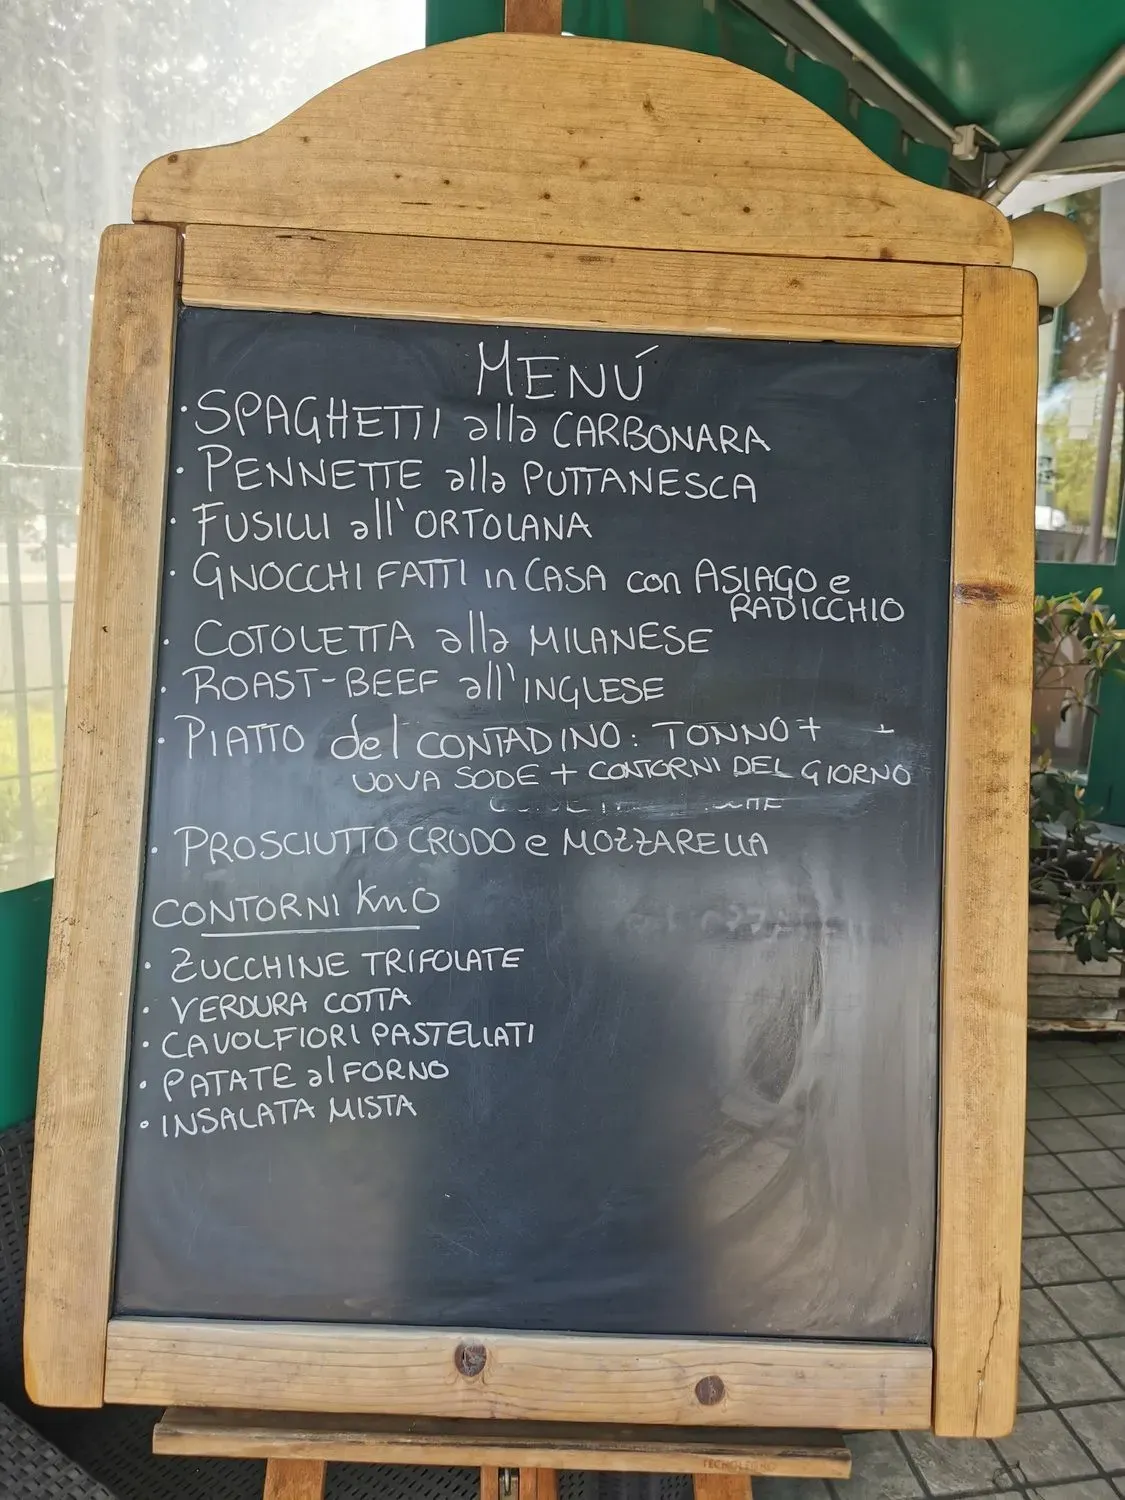 MENÚ
• SPAGHETTI alla CARBONARA
• PENNETTE alla PUTTANESCA
• FUSILLI all'ORTOLANA
• GNOCCHI FATTI in CASA con ASIAGO e
RADICCHIO
• COTOLETTA alla MILANESE
• ROAST-BEEF all'INGLESE
• PIATTO del CONTADINO: TONNO +
UOVA SODE + CONTORNI DEL GIORNO
• PROSCIUTTO CRUDO e MOZZARELLA
CONTORNI Km0
• ZUCCHINE TRIFOLATE
• VERDURA COTTA
• CAVOLFIORI PASTELLATI
• PATATE al FORNO
• INSALATA MISTA